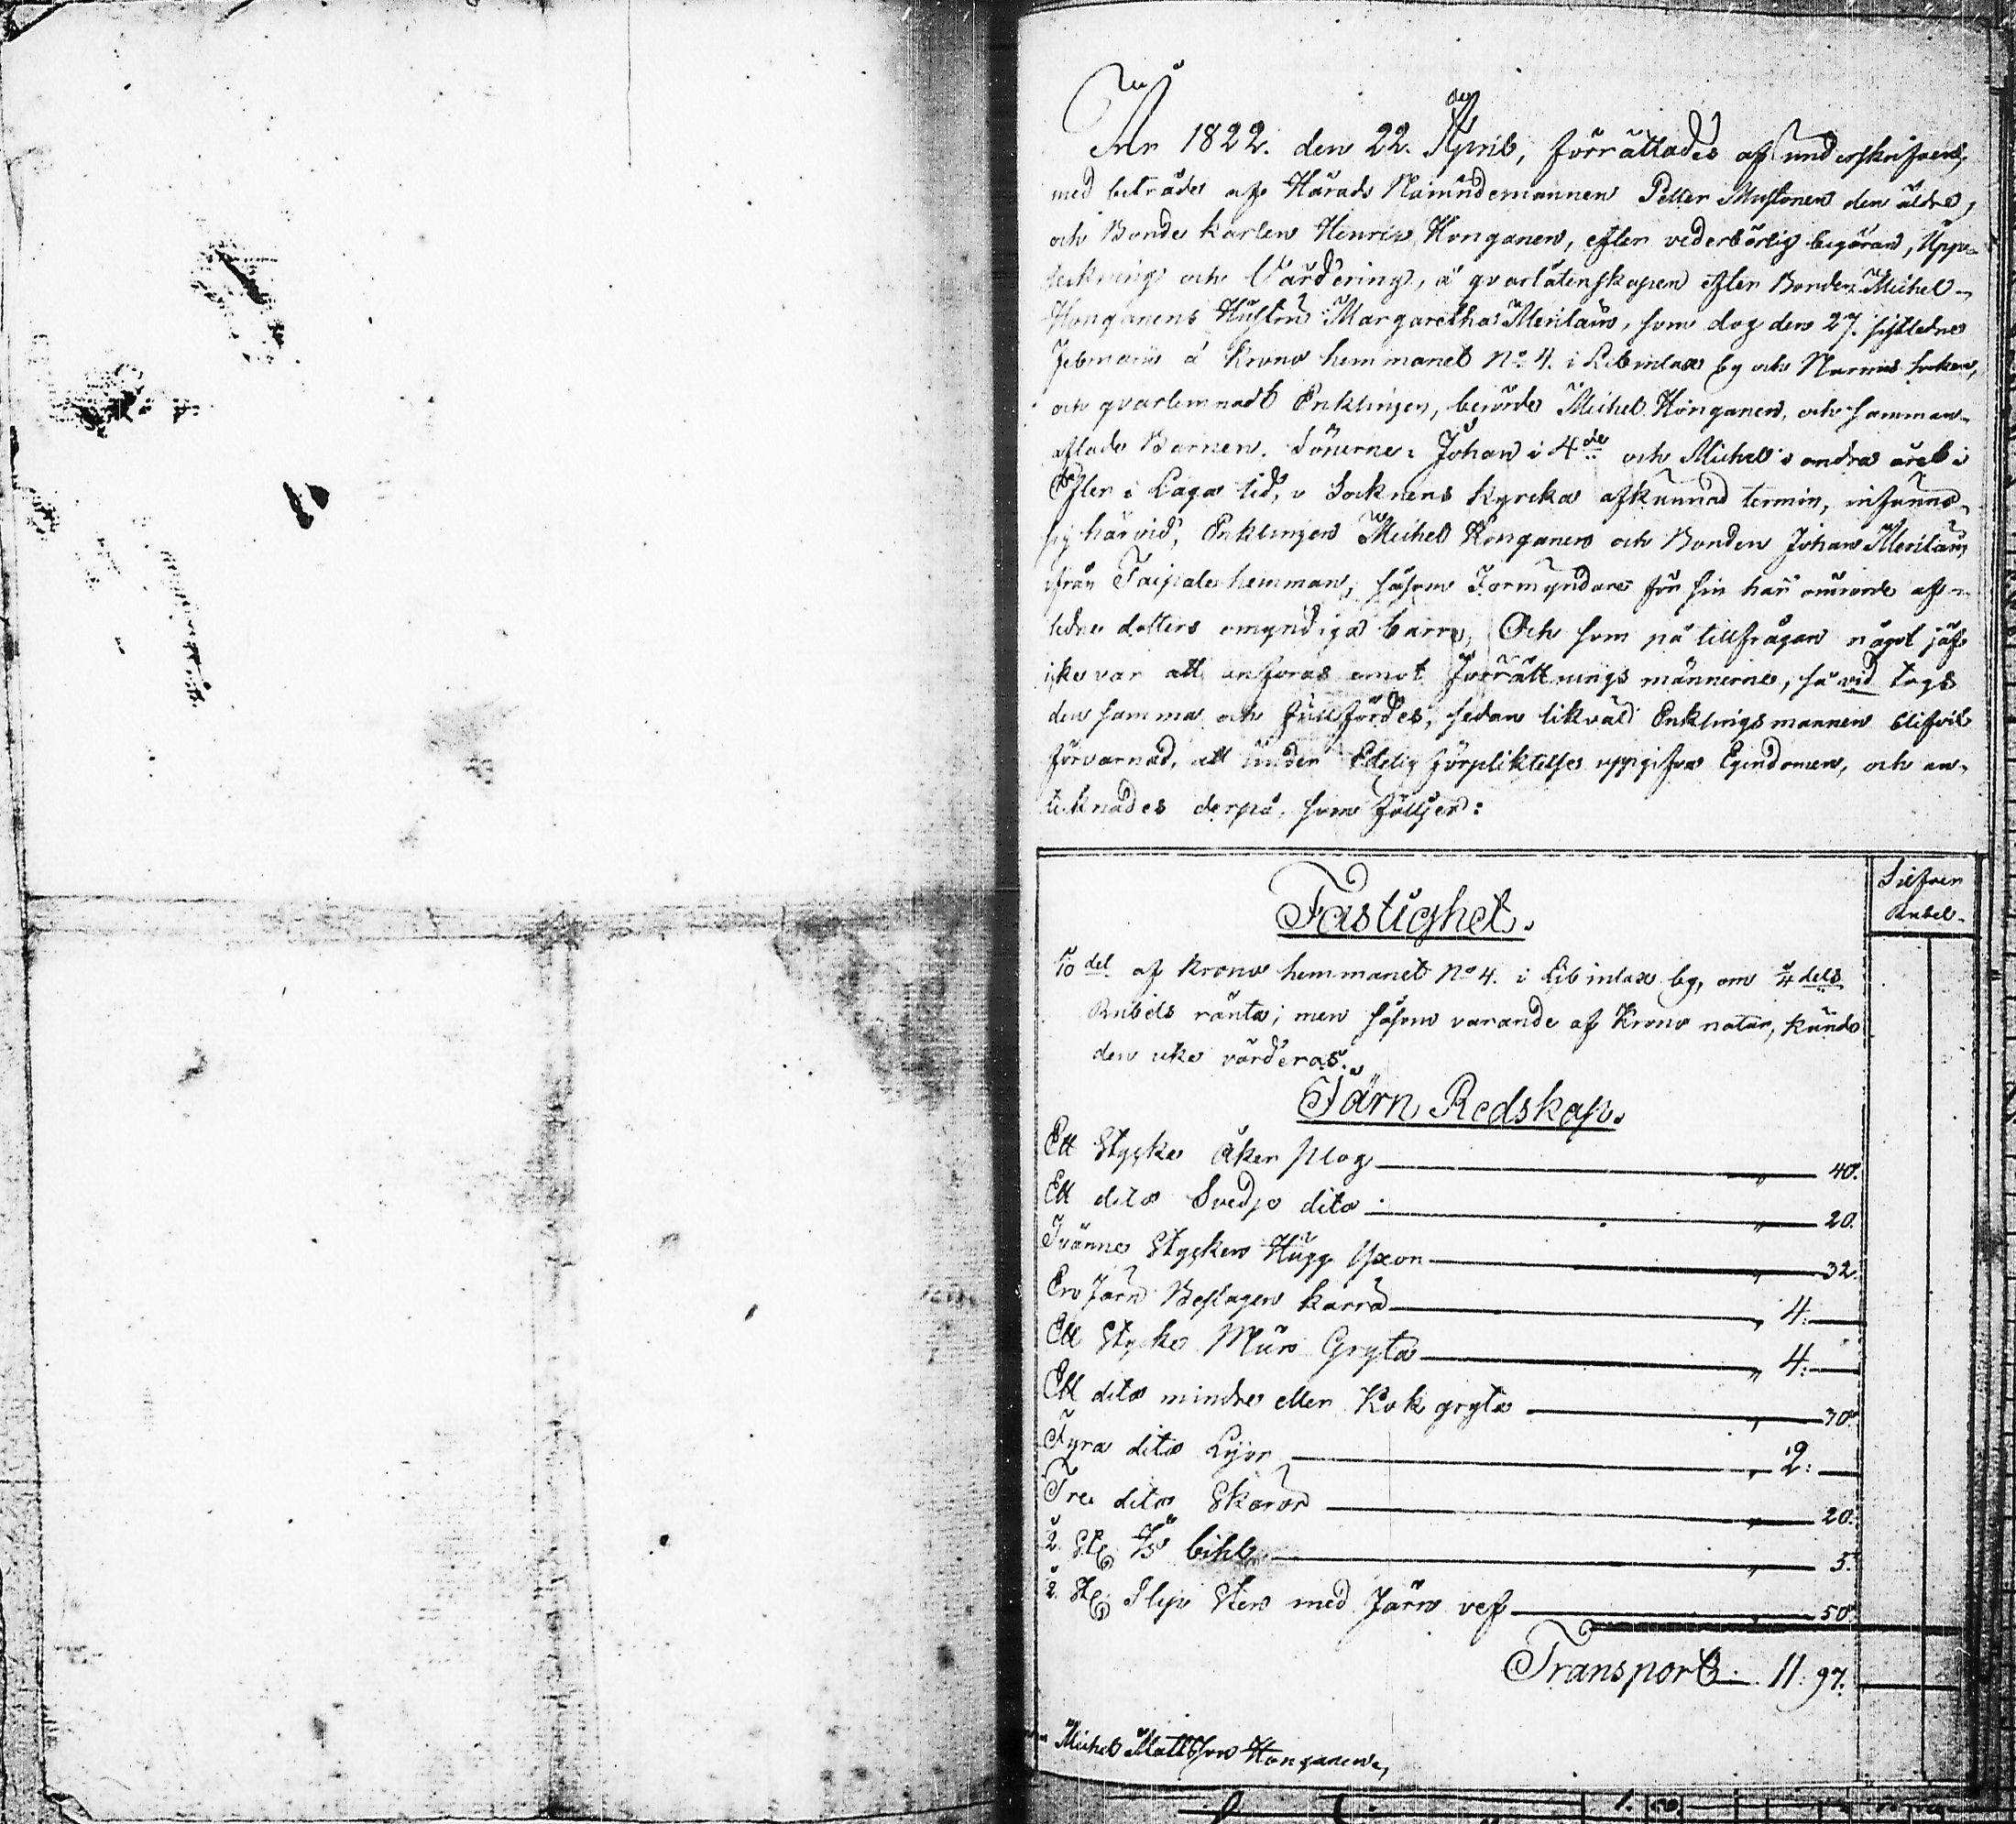 År 1822. den 22. April, förrättades af underskrifven,
med beträde af Härads Nämndemannen Petter Mustonen den äldre,
och Bonde karlen Henric Honganen, efter vederbörlig begäran, Uppe-
teckning och Värdering, å qvarlåtenskapen efter Bonden Michel
Honganens Hustru Margaretha Meriläin, som dog den 27. sistledne
Februarii å Krono hemmanet No 4. i Libinlax by och Nurmis Socken,
och qvarlemnadt Enklingen, berörde Michel Honganen, och samman-
aflade Barnen. Sönerne: Johan i 4de och Michel i andra året i
Efter i Laga tid, i Socknens Kyrcka afkunnad termin, infunno
sig härvid, Enklingen Michel Honganen och Bonden Johan Meriläin
ifrån Taipale hemman, såsom Formyndare för sin här omrörde af-
ledne dotters omyndiga barn, Och som på tillfrågan något jäf
icke var att anföras emot Förrättnings männerne, så vid togs
den samma och fullfördes, sedan likväl Enklingsmannen blifvit
förvarnad, att under Edelig förpliktelse uppgifva Egendomen, och an-
tecknades derpå, som följer:
Silfver
Rubel.
Fastighet.
1/10 del af Krono hemmanet No 4. i Libinlax by, om 1/4 dels
Rubels ränta; men såsom varande af Krono natur, kunde
den icke värderas.
Järn Redskap.
Ett Stycke åker plog " 40.
Ett dito Svedjo dito " 20.
Tvänne Stycken Hugg Yxor " 32.
En Järn Beslagen Kärra " 4.
Ett Stycke Mur Gryta " 4.
Ett dito mindre eller Kok gryta " 30.
Fyra dito Lijor " 2.
Tre dito Skäror " 20.
2. St Is bihl " 5.
2. St Slip Sten med Järn vef " 50.
Transport 11. 97.
Michel Mattsson Honganen,